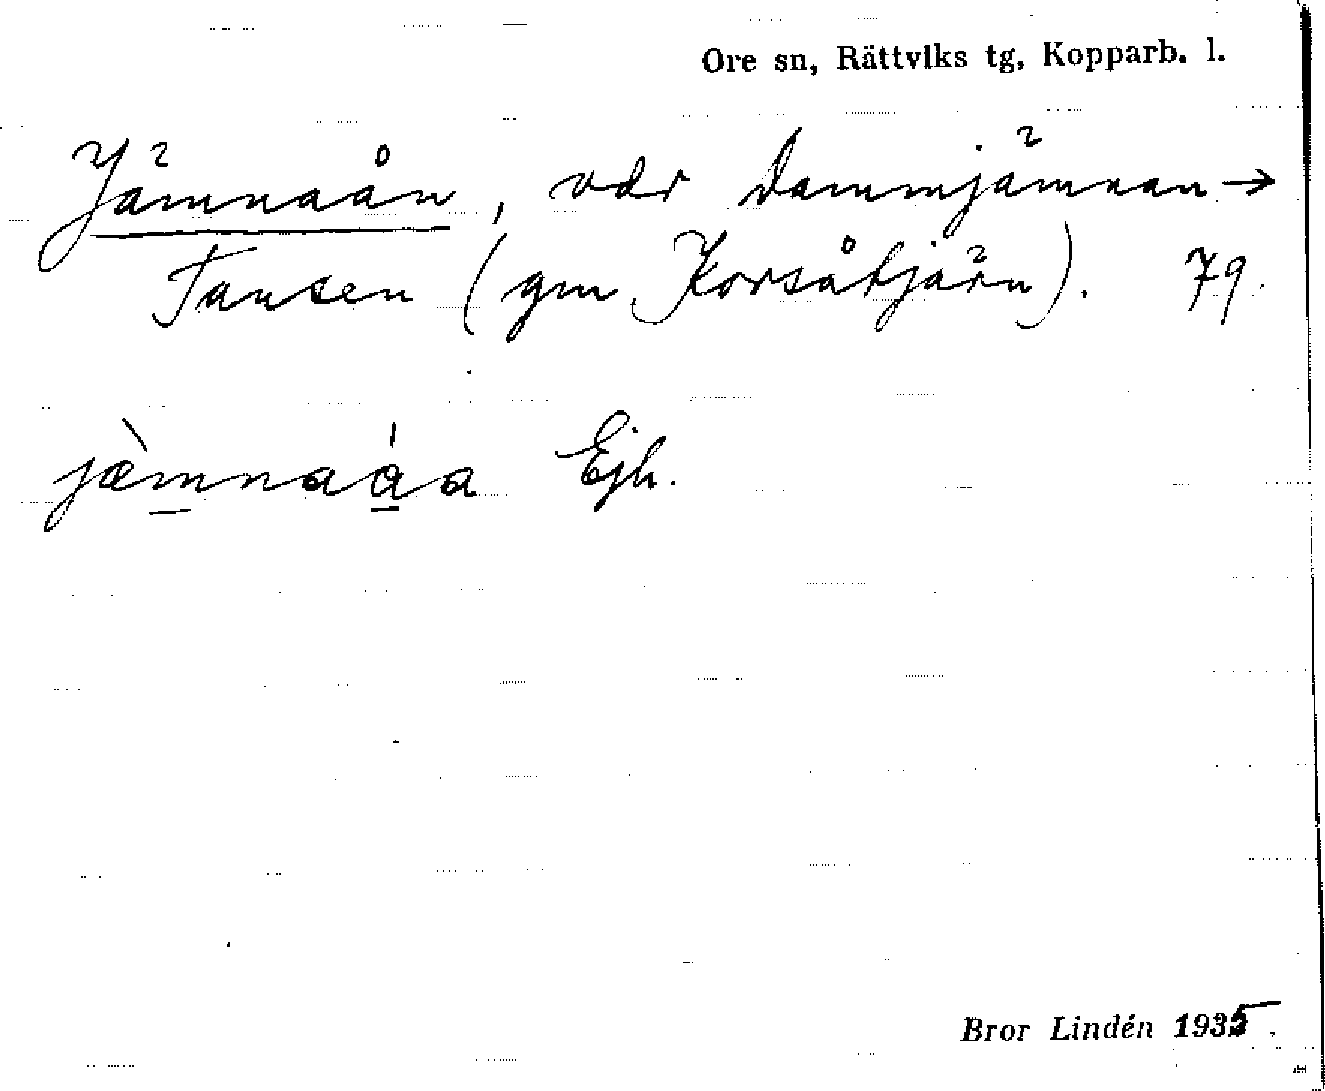 Ore sn, Rättviks tg, Kopparb. l.
Jämnaån, vdr Dammjämnan →
Tansen (gm Korsåtjärn). 79
jæ̀mnaáa Ejh.
Bror Lindén 1935.